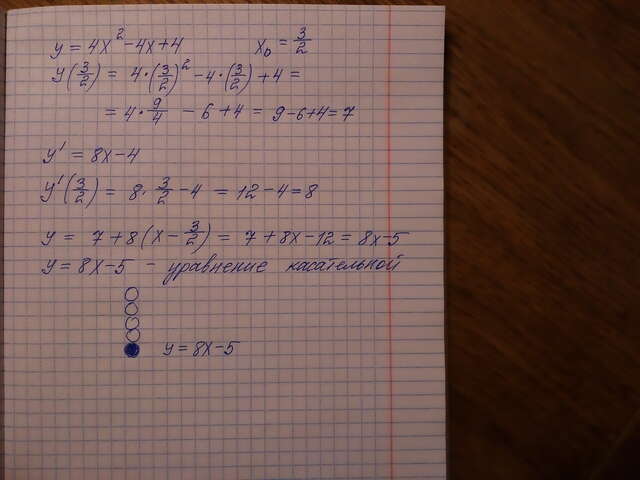 y = 4x² - 4x + 4 x₀ = 3/2
y(3/2) = 4·(3/2)² - 4·(3/2) + 4 =
= 4·9/4 - 6 + 4 = 9 - 6 + 4 = 7
y' = 8x - 4
y'(3/2) = 8·3/2 - 4 = 12 - 4 = 8
y = 7 + 8(x - 3/2) = 7 + 8x - 12 = 8x - 5
y = 8x - 5 - уравнение касательной
y = 8x - 5